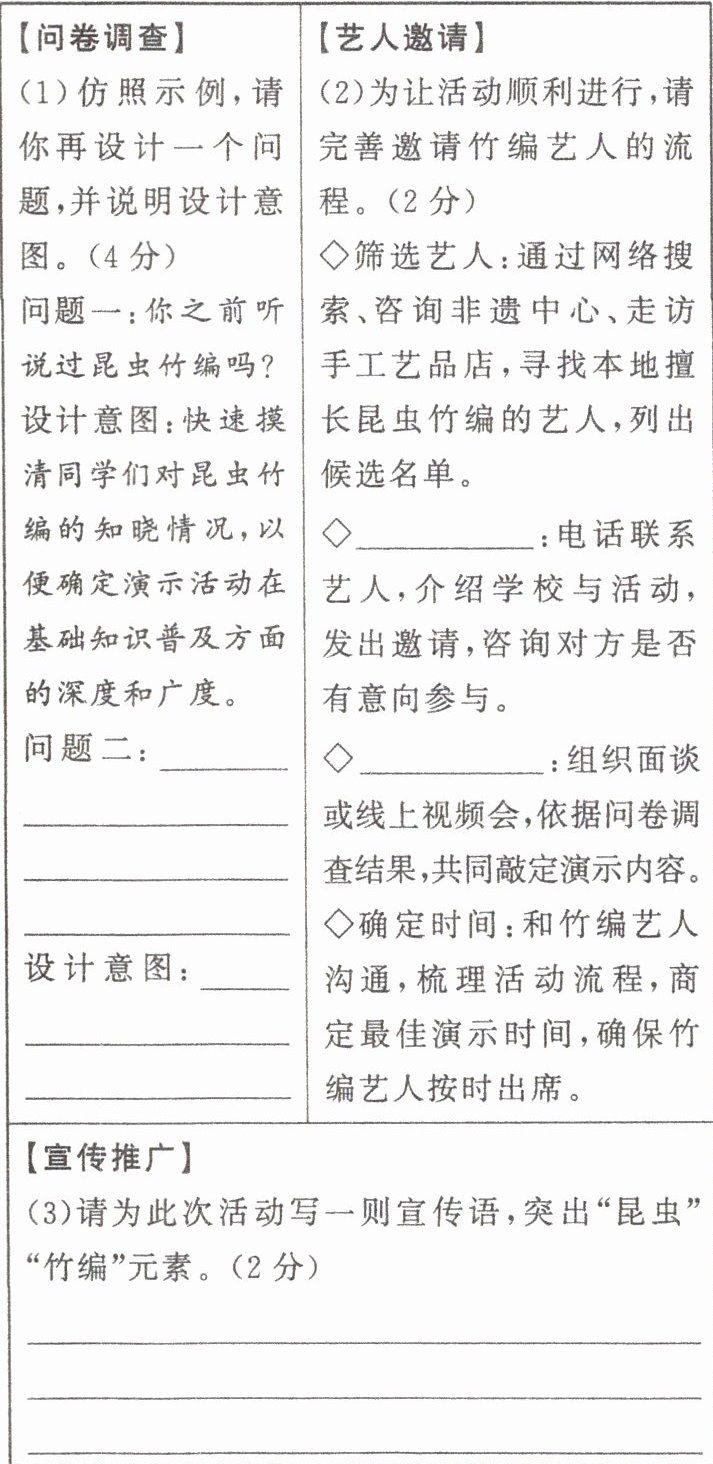 【问卷调查】
(1)仿照示例,请
你再设计一个问
题,并说明设计意
图。(4分)
问题一:你之前听
说过昆虫竹编吗?
设计意图:快速摸
清同学们对昆虫竹
编的知晓情况,以
便确定演示活动在
基础知识普及方面
的深度和广度。
问题二:________
设计意图:______
【艺人邀请】
(2)为让活动顺利进行,请
完善邀请竹编艺人的流
程。(2分)
◇筛选艺人:通过网络搜
索、咨询非遗中心、走访
手工艺品店,寻找本地擅
长昆虫竹编的艺人,列出
候选名单。
◇__________:电话联系
艺人,介绍学校与活动,
发出邀请,咨询对方是否
有意向参与。
◇__________:组织面谈
或线上视频会,依据问卷调
查结果,共同敲定演示内容。
◇确定时间:和竹编艺人
沟通,梳理活动流程,商
定最佳演示时间,确保竹
编艺人按时出席。
【宣传推广】
(3)请为此次活动写一则宣传语,突出“昆虫”
“竹编”元素。(2分)